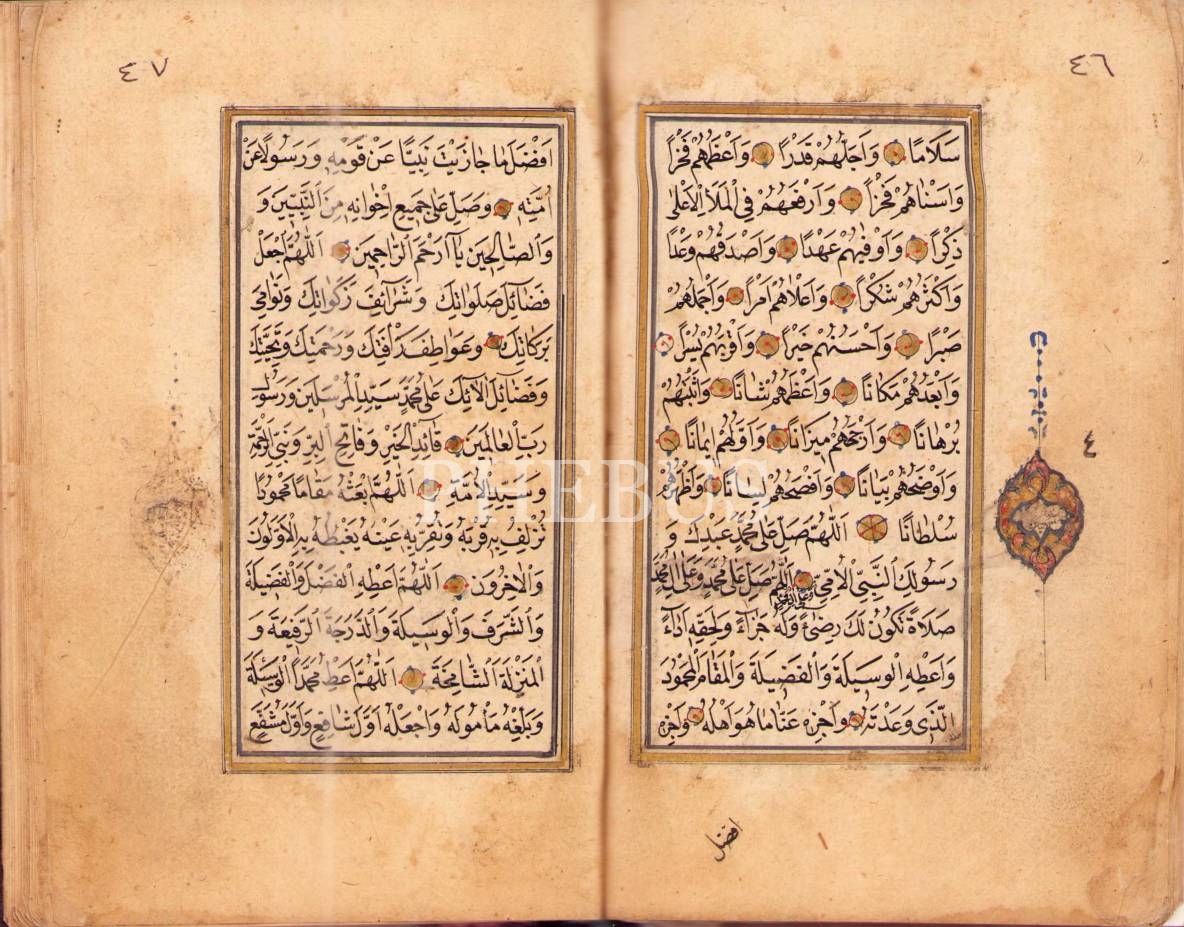 ٤٦
سَلَامًا وَاَجَلِّهِمْ قَدْرًا وَاَعْظَمِهِمْ فَخْرًا
وَاَسْنَاهُمْ فَخْرًا وَاَرْفَعِهِمْ فِي الْمَلَأِ الْاَعْلٰى
ذِكْرًا وَاَوْفَيهِمْ عَهْدًا وَاَصْدَقِهِمْ وَعْدًا
وَاَكْثَرِهِمْ شُكْرًا وَاَعْلَاهُمْ اَمْرًا وَاَجْمَلِهِمْ
صَبْرًا وَاَحْسَنِهِمْ خَيْرًا وَاَقْرَبِهِمْ يُسْرًا
وَاَبْعَدِهِمْ مَكَانًا وَاَعْظَمِهِمْ شَانًا وَاَثْبَتِهِمْ
بُرْهَانًا وَاَرْجَحِهِمْ مِيزَانًا وَاَوَّلِهِمْ اِيمَانًا
وَاَوْضَحِهِمْ بَيَانًا وَاَفْصَحِهِمْ لِسَانًا وَاَظْهَرِهِمْ
سُلْطَانًا اَللّٰهُمَّ صَلِّ عَلٰى مُحَمَّدٍ عَبْدِكَ وَ
رَسُولِكَ النَّبِيِّ الْاُمِّيِّ اَللّٰهُمَّ صَلِّ عَلٰى مُحَمَّدٍ وَعَلٰى اٰلِ مُحَمَّدٍ
صَلَاةً تَكُونُ لَكَ رِضًى وَلَهُ جَزَاءً وَلِحَقِّهِ اَدَاءً
وَاَعْطِهِ الْوَسِيلَةَ وَالْفَضِيلَةَ وَالْمَقَامَ الْمَحْمُودَ
الَّذِي وَعَدْتَهُ وَاَجْزِهِ عَنَّا مَا هُوَ اَهْلُهُ وَاَجْزِهِ
افضل
٤
٤٧
اَفْضَلَ مَا جَازَيْتَ نَبِيًّا عَنْ قَوْمِهِ وَرَسُولًا عَنْ
اُمَّتِهِ وَصَلِّ عَلٰى جَمِيعِ اِخْوَانِهِ مِنَ النَّبِيِّينَ وَ
وَالصَّالِحِينَ يَا اَرْحَمَ الرَّاحِمِينَ اَللّٰهُمَّ اجْعَلْ
فَضَائِلَ صَلَوَاتِكَ وَشَرَائِفَ زَكَوَاتِكَ وَنَوَامِيَ
بَرَكَاتِكَ وَعَوَاطِفَ رَأْفَتِكَ وَرَحْمَتِكَ وَتَحِيَّتِكَ
وَفَضَائِلَ اٰلَائِكَ عَلٰى مُحَمَّدٍ سَيِّدِ الْمُرْسَلِينَ وَرَسُولِ
رَبِّ الْعَالَمِينَ قَائِدِ الْخَيْرِ وَفَاتِحِ الْبِرِّ وَنَبِيِّ الرَّحْمَةِ
وَسَيِّدِ الْاُمَّةِ اَللّٰهُمَّ ابْعَثْهُ مَقَامًا مَحْمُودًا
تُزْلِفُ بِهِ قُرْبَهُ وَتُقِرُّ بِهِ عَيْنَهُ يَغْبِطُهُ بِهِ الْاَوَّلُونَ
وَالْاٰخِرُونَ اَللّٰهُمَّ اَعْطِهِ الْفَضْلَ وَالْفَضِيلَةَ
وَالشَّرَفَ وَالْوَسِيلَةَ وَالدَّرَجَةَ الرَّفِيعَةَ وَ
الْمَنْزِلَةَ الشَّامِخَةَ اَللّٰهُمَّ اَعْطِ مُحَمَّدًا الْوَسِيلَةَ
وَبَلِّغْهُ مَأْمُولَهُ وَاجْعَلْهُ اَوَّلَ شَافِعٍ وَاَوَّلَ مُشَفَّعٍ
PHEBUS